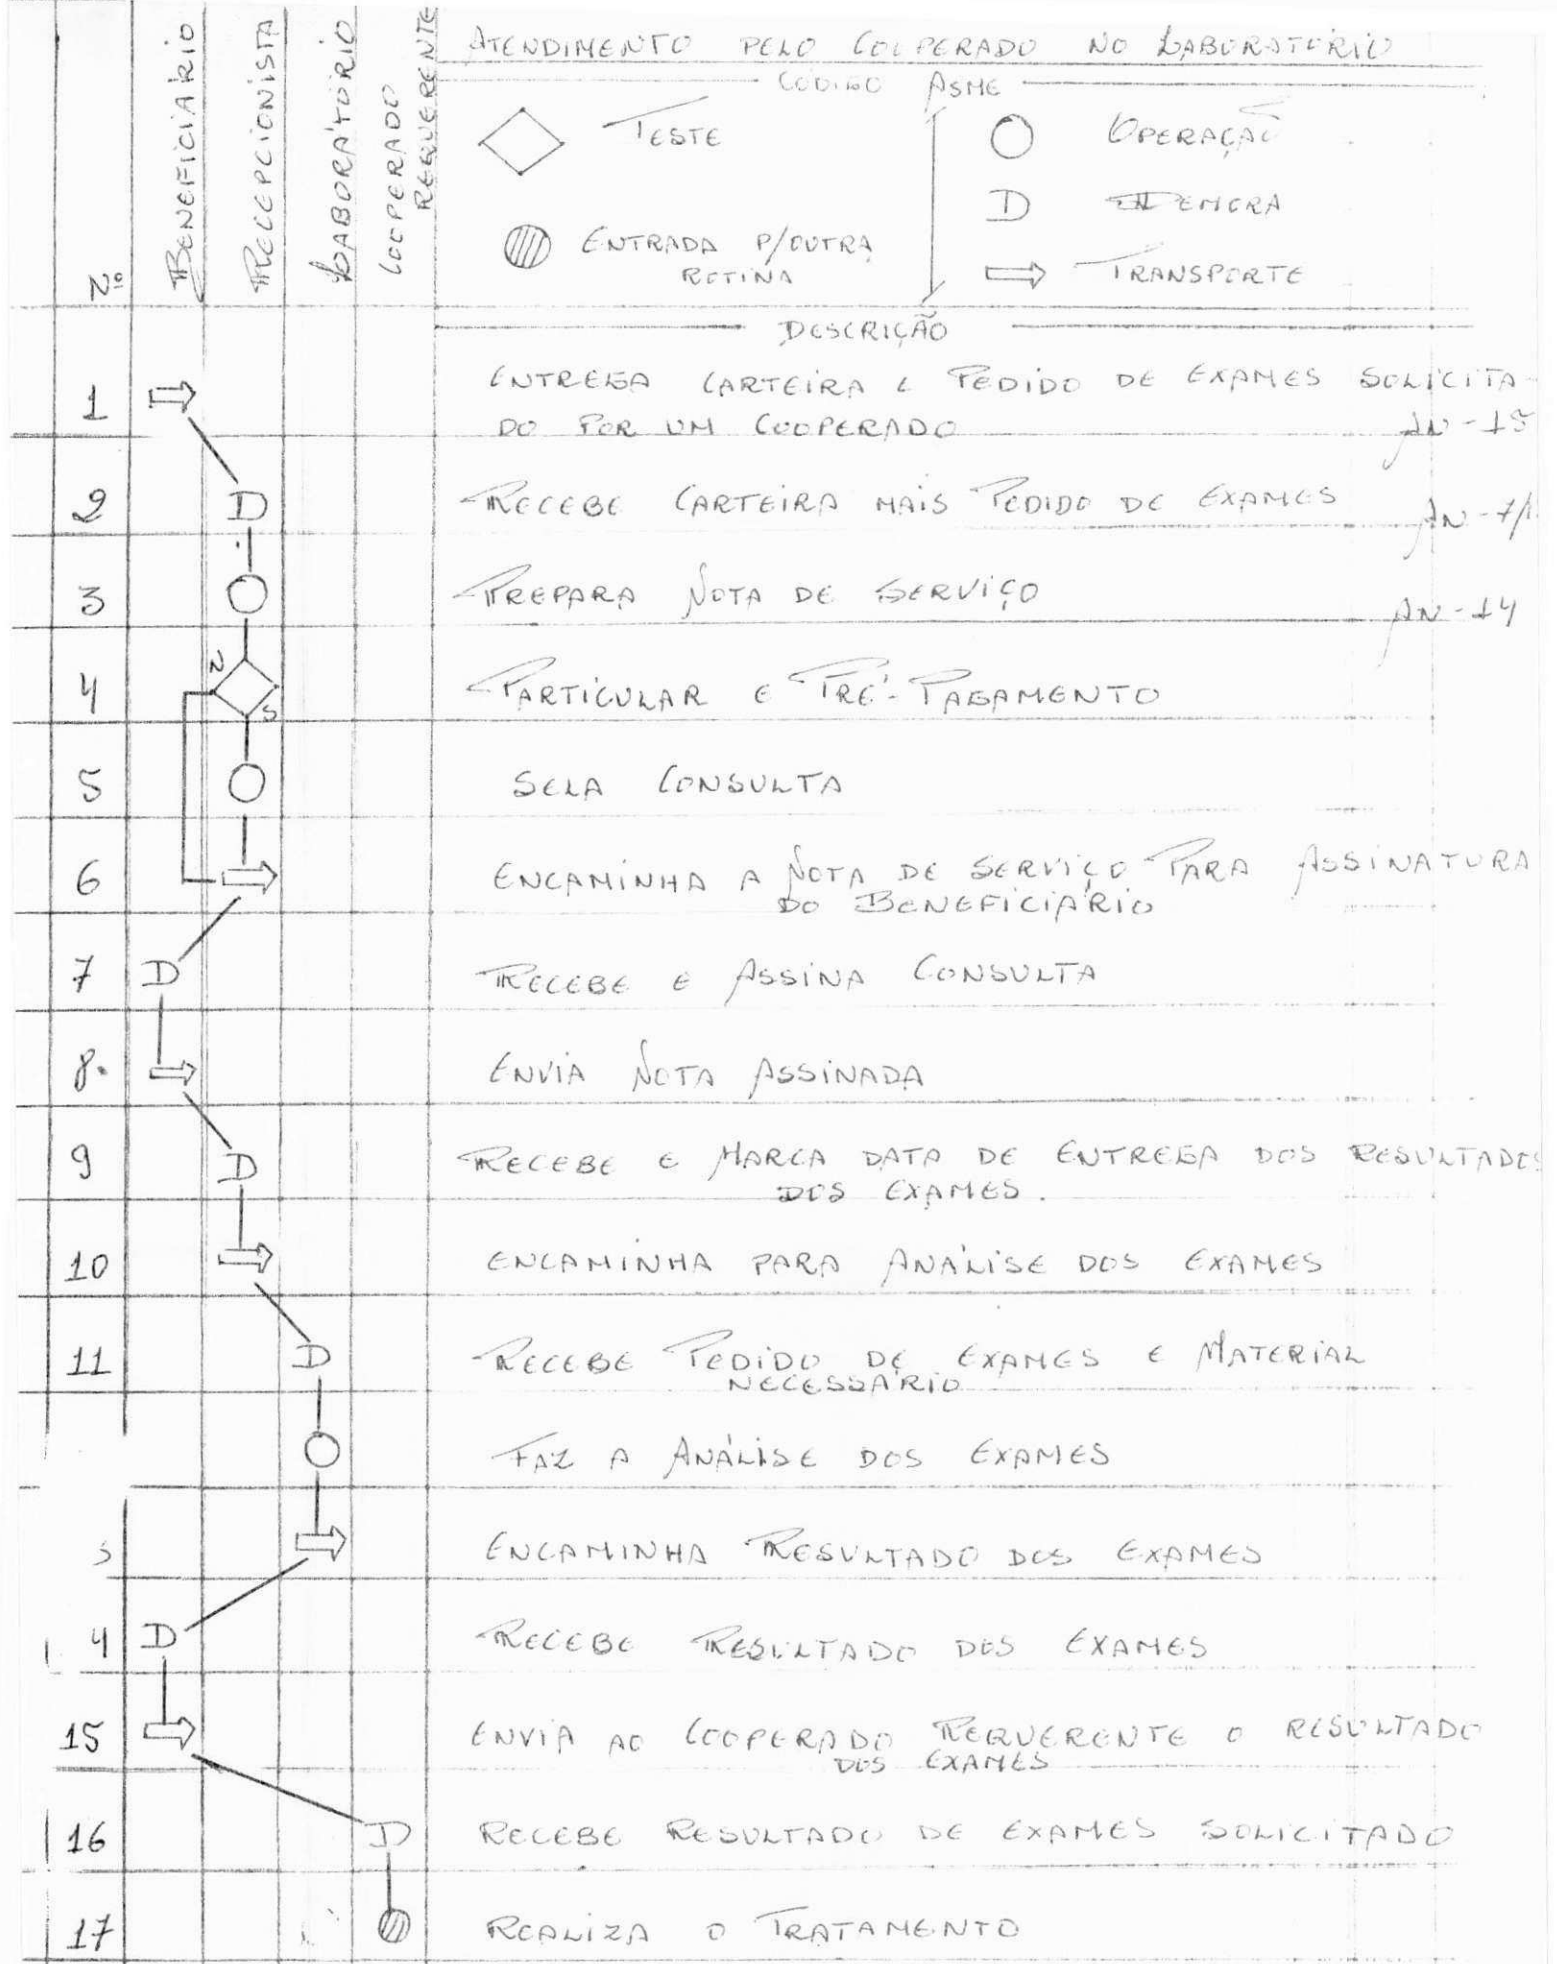 ATENDIMENTO PELO COOPERADO NO LABORATÓRIO
CÓDIGO ASME
Nº
BENEFICIÁRIO
RECEPCIONISTA
LABORATÓRIO
COOPERADO
REQUERENTE
TESTE
OPERAÇÃO
D DEMORA
ENTRADA P/OUTRA
ROTINA
TRANSPORTE
DESCRIÇÃO
1 ENTREGA CARTEIRA E PEDIDO DE EXAMES SOLICITA-
DO POR UM COOPERADO AN-15
2 D RECEBE CARTEIRA MAIS PEDIDO DE EXAMES AN-7/
3 PREPARA NOTA DE SERVIÇO AN-14
4 N S PARTICULAR E PRÉ-PAGAMENTO
5 SELA CONSULTA
6 ENCAMINHA A NOTA DE SERVIÇO PARA ASSINATURA
DO BENEFICIÁRIO
7 D RECEBE E ASSINA CONSULTA
8. ENVIA NOTA ASSINADA
9 D RECEBE E MARCA DATA DE ENTREGA DOS RESULTADOS
DOS EXAMES.
10 ENCAMINHA PARA ANÁLISE DOS EXAMES
11 D RECEBE PEDIDO DE EXAMES E MATERIAL
NECESSÁRIO
FAZ A ANÁLISE DOS EXAMES
ENCAMINHA RESULTADO DOS EXAMES
4 D RECEBE RESULTADO DOS EXAMES
15 ENVIA AO COOPERADO REQUERENTE O RESULTADO
DOS EXAMES
16 D RECEBE RESULTADO DE EXAMES SOLICITADO
17 REALIZA O TRATAMENTO